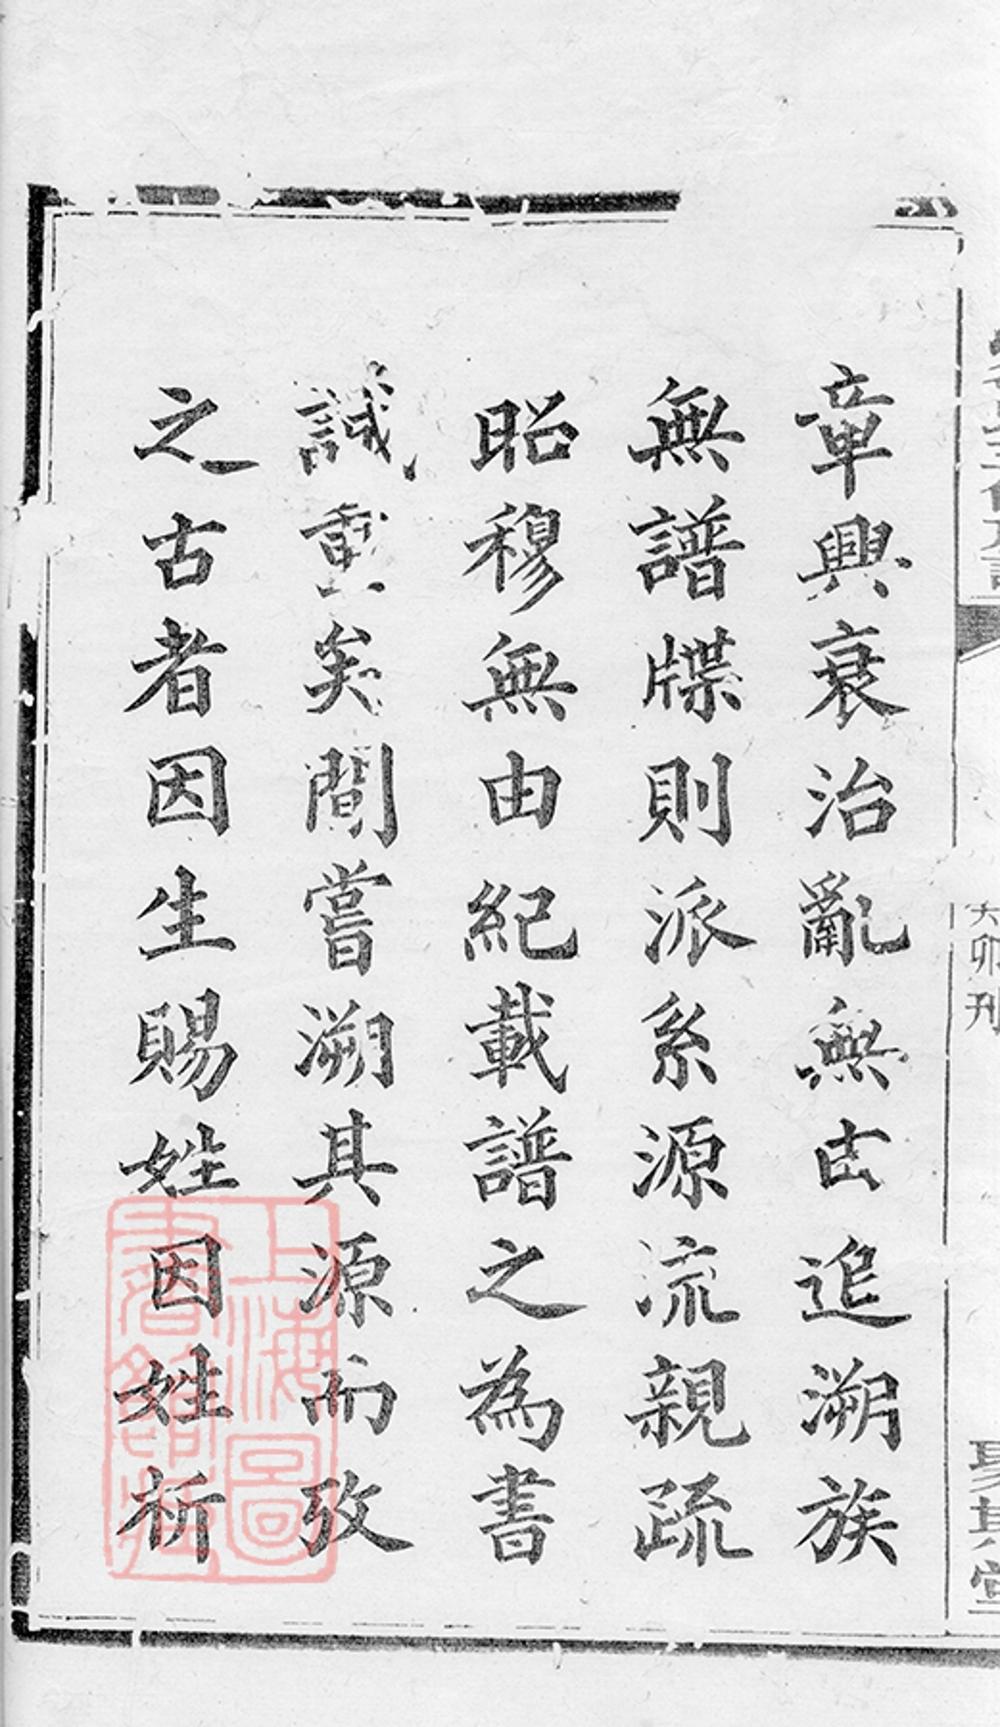 癸卯刊
聚其堂
章興衰治亂無由追溯族
無譜牒則派系源流親疏
昭穆無由紀載譜之為書
誠重矣間嘗溯其源而攷
之古者因生賜姓因姓析
上海圖
書館藏